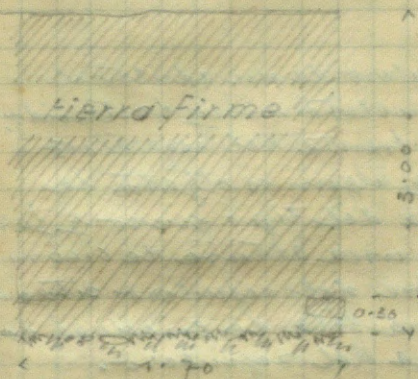 tierra firme
3.00
0.30
1.70